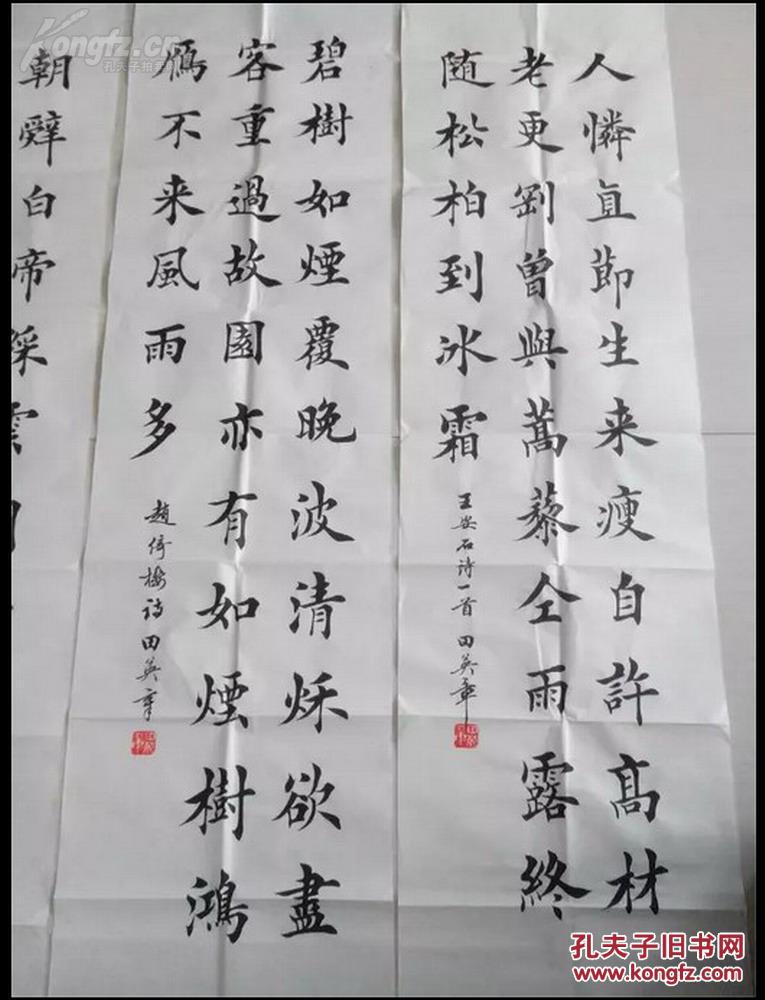 人憐直節生来瘦自許髙材
老更剛曾與蒿藜仝雨露終
随松柏到冰霜
王安石诗一首 田英章
碧樹如煙覆晚波清秌欲盡
客重過故園亦有如煙樹鴻
鴈不来風雨多
趙倚楼诗 田英章
朝辤白帝綵雲
Kongfz.cn
孔夫子拍卖网
孔夫子旧书网
www.kongfz.com